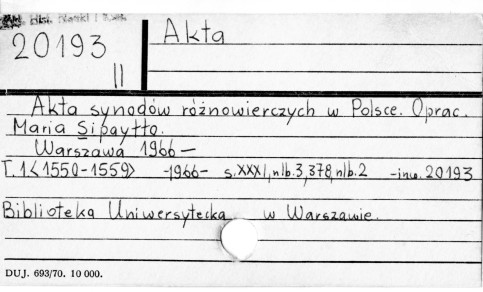 20193
II
Akta
Akta synodów różnowierczych w Polsce. Oprac.
Maria Sipayłło.
Warszawa 1966 —
T.1<1550-1559> -1966- s.XXXI,nlb.3,378,nlb.2 -inw.20193
Biblioteka Uniwersytecka w Warszawie.
DUJ. 693/70. 10 000.